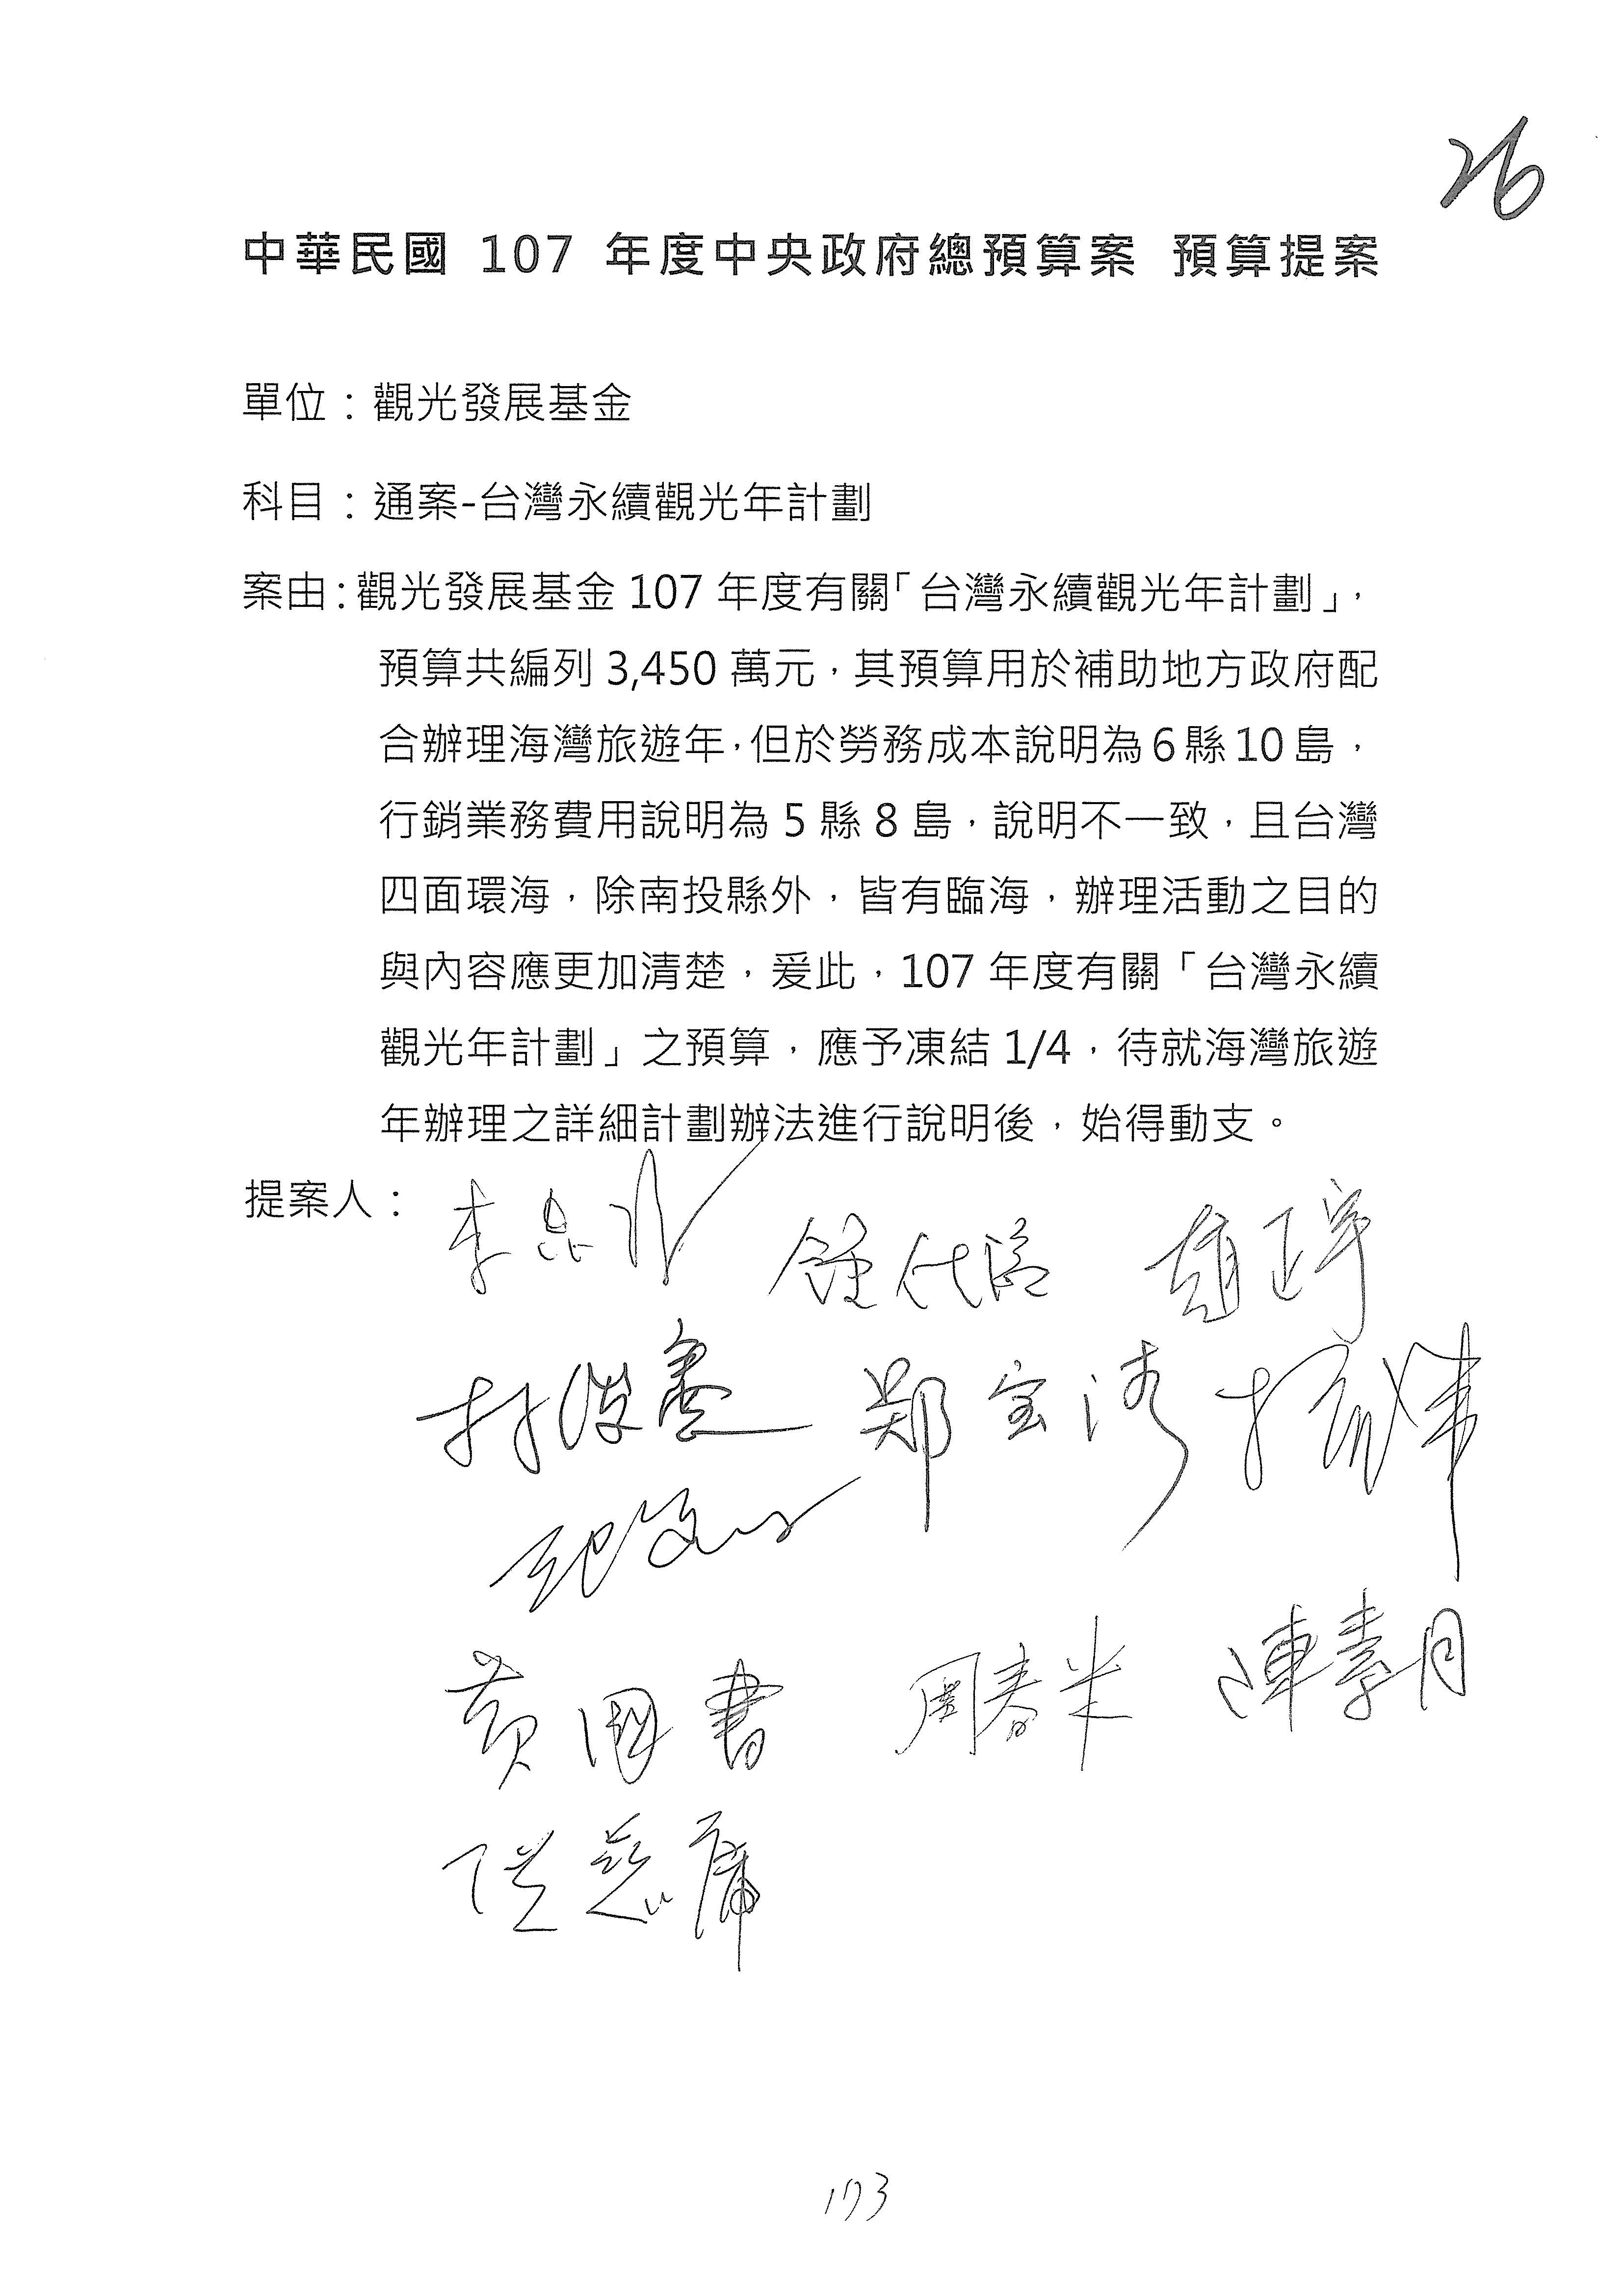 26
中華民國 107 年度中央政府總預算案 預算提案
單位：觀光發展基金
科目：通案-台灣永續觀光年計劃
案由：觀光發展基金 107 年度有關「台灣永續觀光年計劃」，
預算共編列 3,450 萬元，其預算用於補助地方政府配
合辦理海灣旅遊年，但於勞務成本說明為 6 縣 10 島，
行銷業務費用說明為 5 縣 8 島，說明不一致，且台灣
四面環海，除南投縣外，皆有臨海，辦理活動之目的
與內容應更加清楚，爰此，107 年度有關「台灣永續
觀光年計劃」之預算，應予凍結 1/4，待就海灣旅遊
年辦理之詳細計劃辦法進行說明後，始得動支。
提案人：
林俊憲 鄭宝清
黃國書 周春米 陳素月
洪慈庸
193